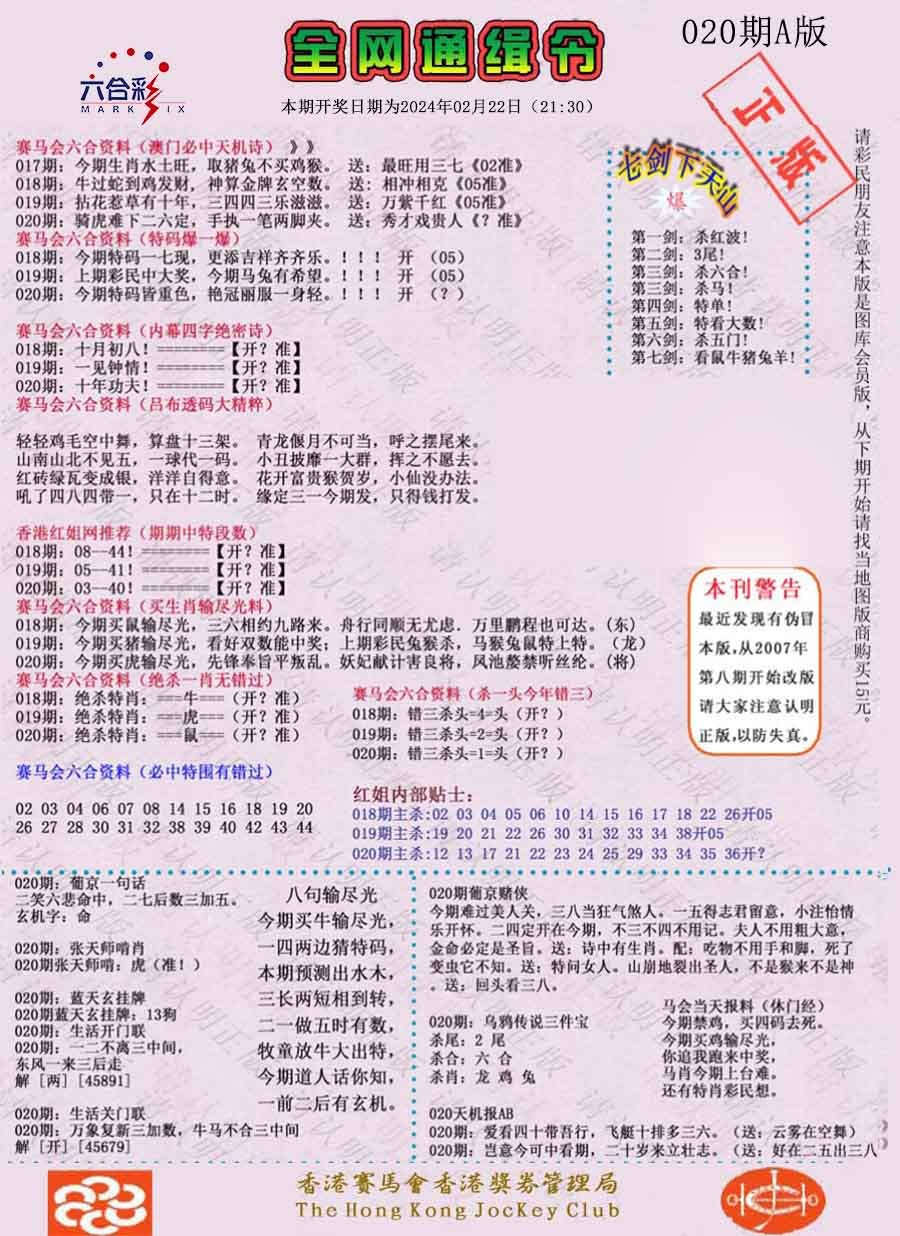 020期A版
全网通缉令
六合彩
MARK SIX
本期开奖日期为2024年02月22日（21:30）
正版
赛马会六合资料（澳门必中天机诗）》》
017期：今期生肖水土旺，取猪兔不买鸡猴。 送：最旺用三七《02准》
018期：牛过蛇到鸡发财，神算金牌玄空数。 送：相冲相克《05准》
019期：拈花惹草有十年，三四四三乐滋滋。 送：万紫千红《05准》
020期：骑虎难下二六定，手执一笔两脚夹。 送：秀才戏贵人《？准》
赛马会六合资料（特码爆一爆）
018期：今期特码一七现，更添吉祥齐齐乐。！！！ 开 （05）
019期：上期彩民中大奖，今期马兔有希望。！！！ 开 （05）
020期：今期特码皆重色，艳冠丽服一身轻。！！！ 开 （？）
赛马会六合资料（内幕四字绝密诗）
018期：十月初八！========【开？准】
019期：一见钟情！========【开？准】
020期：十年功夫！========【开？准】
赛马会六合资料（吕布透码大精粹）
轻轻鸡毛空中舞，算盘十三架。 青龙偃月不可当，呼之摆尾来。
山南山北不见五，一球代一码。 小丑披靡一大群，挥之不愿去。
红砖绿瓦变成银，洋洋自得意。 花开富贵猴贺岁，小仙没办法。
吼了四八四带一，只在十二时。 缘定三一今期发，只得钱打发。
香港红姐网推荐（期期中特段数）
018期：08--44！========【开？准】
019期：05--41！========【开？准】
020期：03--40！========【开？准】
赛马会六合资料（买生肖输尽光料）
018期：今期买鼠输尽光，三六相约九路来。舟行同顺无尤虑．万里鹏程也可达。（东）
019期：今期买猪输尽光，看好双数能中奖；上期彩民兔猴杀，马猴兔鼠特上特。（龙）
020期：今期买虎输尽光，先锋奉旨平叛乱。妖妃献计害良将，风池嫠禁听丝纶。（将）
赛马会六合资料（绝杀一肖无错过）
018期：绝杀特肖：===牛===（开？准）
019期：绝杀特肖：===虎===（开？准）
020期：绝杀特肖：===鼠===（开？准）
赛马会六合资料（杀一头今年错三）
018期：错三杀头=4=头（开？）
019期：错三杀头=2=头（开？）
020期：错三杀头=1=头（开？）
赛马会六合资料（必中特围有错过）
02 03 04 06 07 08 14 15 16 18 19 20
26 27 28 30 31 32 38 39 40 42 43 44
红姐内部贴士：
018期主杀:02 03 04 05 06 10 14 15 16 17 18 22 26开05
019期主杀:19 20 21 22 26 30 31 32 33 34 38开05
020期主杀:12 13 17 21 22 23 24 25 29 33 34 35 36开？
七剑下天山
爆
第一剑：杀红波！
第二剑：3尾！
第三剑：杀六合！
第三剑：杀马！
第四剑：特单！
第五剑：特看大数！
第六剑：杀五门！
第七剑：看鼠牛猪兔羊！
本刊警告
最近发现有伪冒
本版,从2007年
第八期开始改版
请大家注意认明
正版,以防失真。
请彩民朋友注意本版是图库会员版，从下期开始请找当地图版商购买15元。
020期：葡京一句话
二笑六悲命中，二七后数三加五。
玄机字：命
020期：张天师啃肖
020期张天师啃：虎（准！）
020期：蓝天玄挂牌
020期蓝天玄挂牌：13狗
020期：生活开门联
020期：一二不离三中间，
东风一来三后走
解 [两] [45891]
020期：生活关门联
020期：万象复新三加数，牛马不合三中间
解 [开] [45679]
八句输尽光
今期买牛输尽光，
一四两边猜特码，
本期预测出水木，
三长两短相到转，
二一做五时有数，
牧童放牛大出特，
今期道人话你知，
一前二后有玄机。
020期葡京赌侠
今期难过美人关，三八当狂气煞人。一五得志君留意，小注怡情
乐开怀。二四定开在今期，不三不四不用记。夫人不用粗大意，
金命必定是圣旨。送：诗中有生肖。配：吃物不用手和脚，死了
变虫它不知。送：特问女人。山崩地裂出圣人，不是猴来不是神
。送：回头看三八。
020期：乌鸦传说三件宝
杀尾：2 尾
杀合：六 合
杀肖：龙 鸡 兔
马会当天报料（休门经）
今期禁鸡，买四码去死。
今期买鸡输尽光，
你追我跑来中奖，
马肖今期上台难。
还有特肖彩民想。
020天机报AB
020期：爱看四十带吾行，飞艇十排多三六。（送：云雾在空舞）
020期：岂意今可中看期，二十岁来立壮志。（送：好在二五出三八
香港赛馬會香港獎券管理局
The Hong Kong JocKey Club